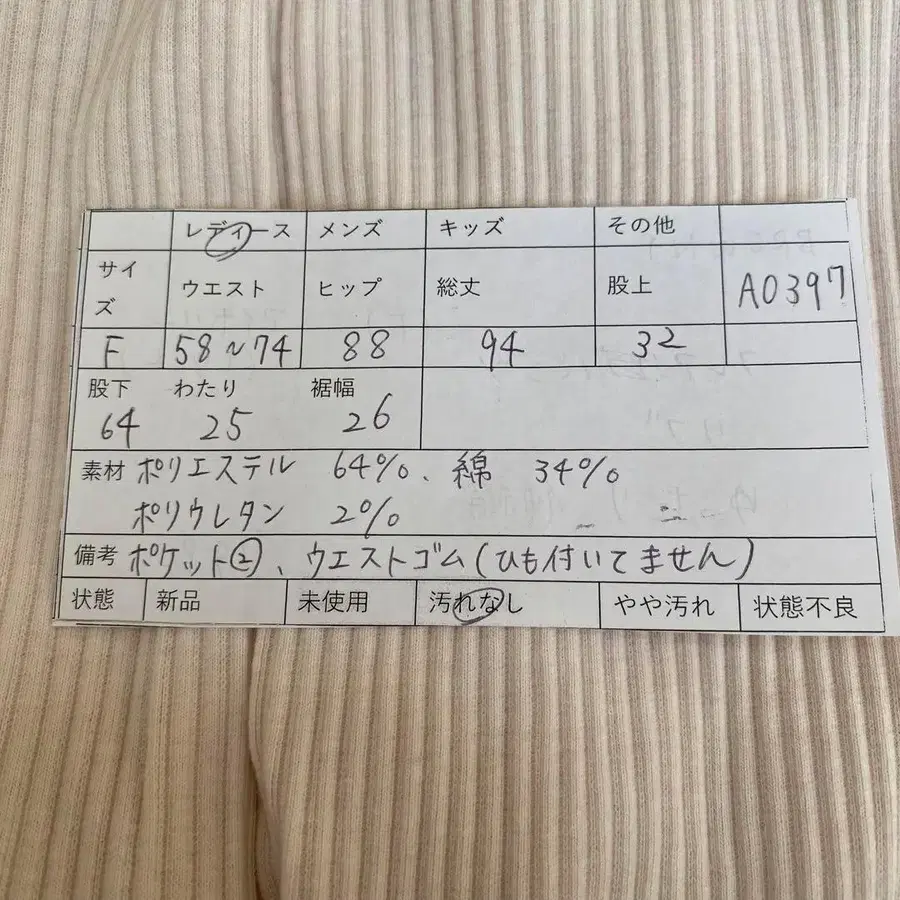 レディース メンズ キッズ その他
サイズ ウエスト ヒップ 総丈 股上 A0397
F 58~74 88 94 32
股下 わたり 裾幅
64 25 26
素材 ポリエステル 64%、綿 34%
ポリウレタン 2%
備考 ポケット②、ウエストゴム(ひも付いてません)
状態 新品 未使用 汚れなし やや汚れ 状態不良